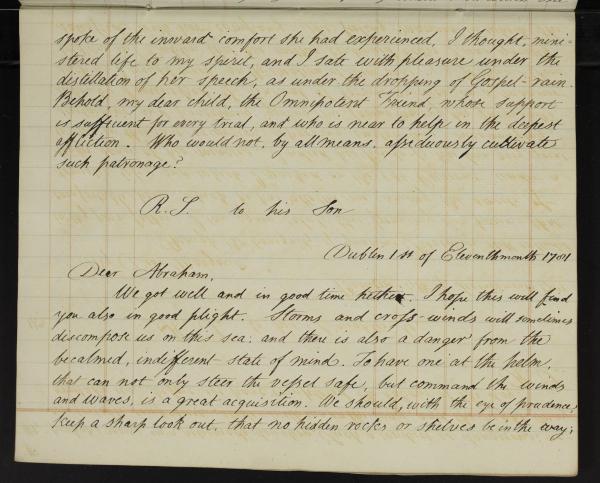 spoke of the inward comfort she had experienced, I thought, mini-
stered life to my spirit, and I sate with pleasure under the
distillation of her speech, as under the dropping of Gospel-rain.
Behold, my dear child, the Omnipotent Friend, whose support
is sufficient for every trial, and who is near to help in the deepest
affliction. Who would not, by all means, assiduously cultivate
such patronage?
R. S. to his Son
Dublin 1st of Eleventhmonth 1781
Dear Abraham,
We got well and in good time hither. I hope this will find
you also in good plight. Storms and cross-winds will sometimes
discompose us on this sea, and there is also a danger from the
becalmed, indifferent state of mind. To have one at the helm,
that can not only steer the vessel safe, but command the winds
and waves, is a great acquisition. We should, with the eye of prudence,
keep a sharp look out, that no hidden rocks or shelves be in the way;